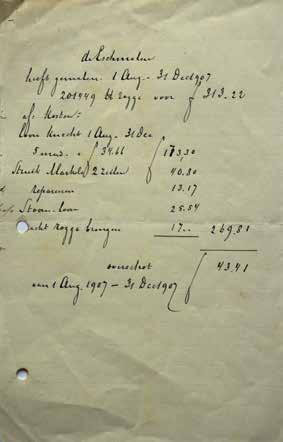 de Eschmolen
heeft gemalen. 1 Aug - 31 Dec 1907
201449 ℔ rogge voor ƒ 313.22
af: Kosten:
Aan knecht 1 Aug - 31 Dec
5 mnd. a ƒ 34.66 ƒ 173,30
2 zeilen 40.80
repareeren 13.17
loon 25.54
rogge brengen 17.. 269.81
overschot ƒ 43.41
van 1 Aug. 1907 - 31 Dec 1907